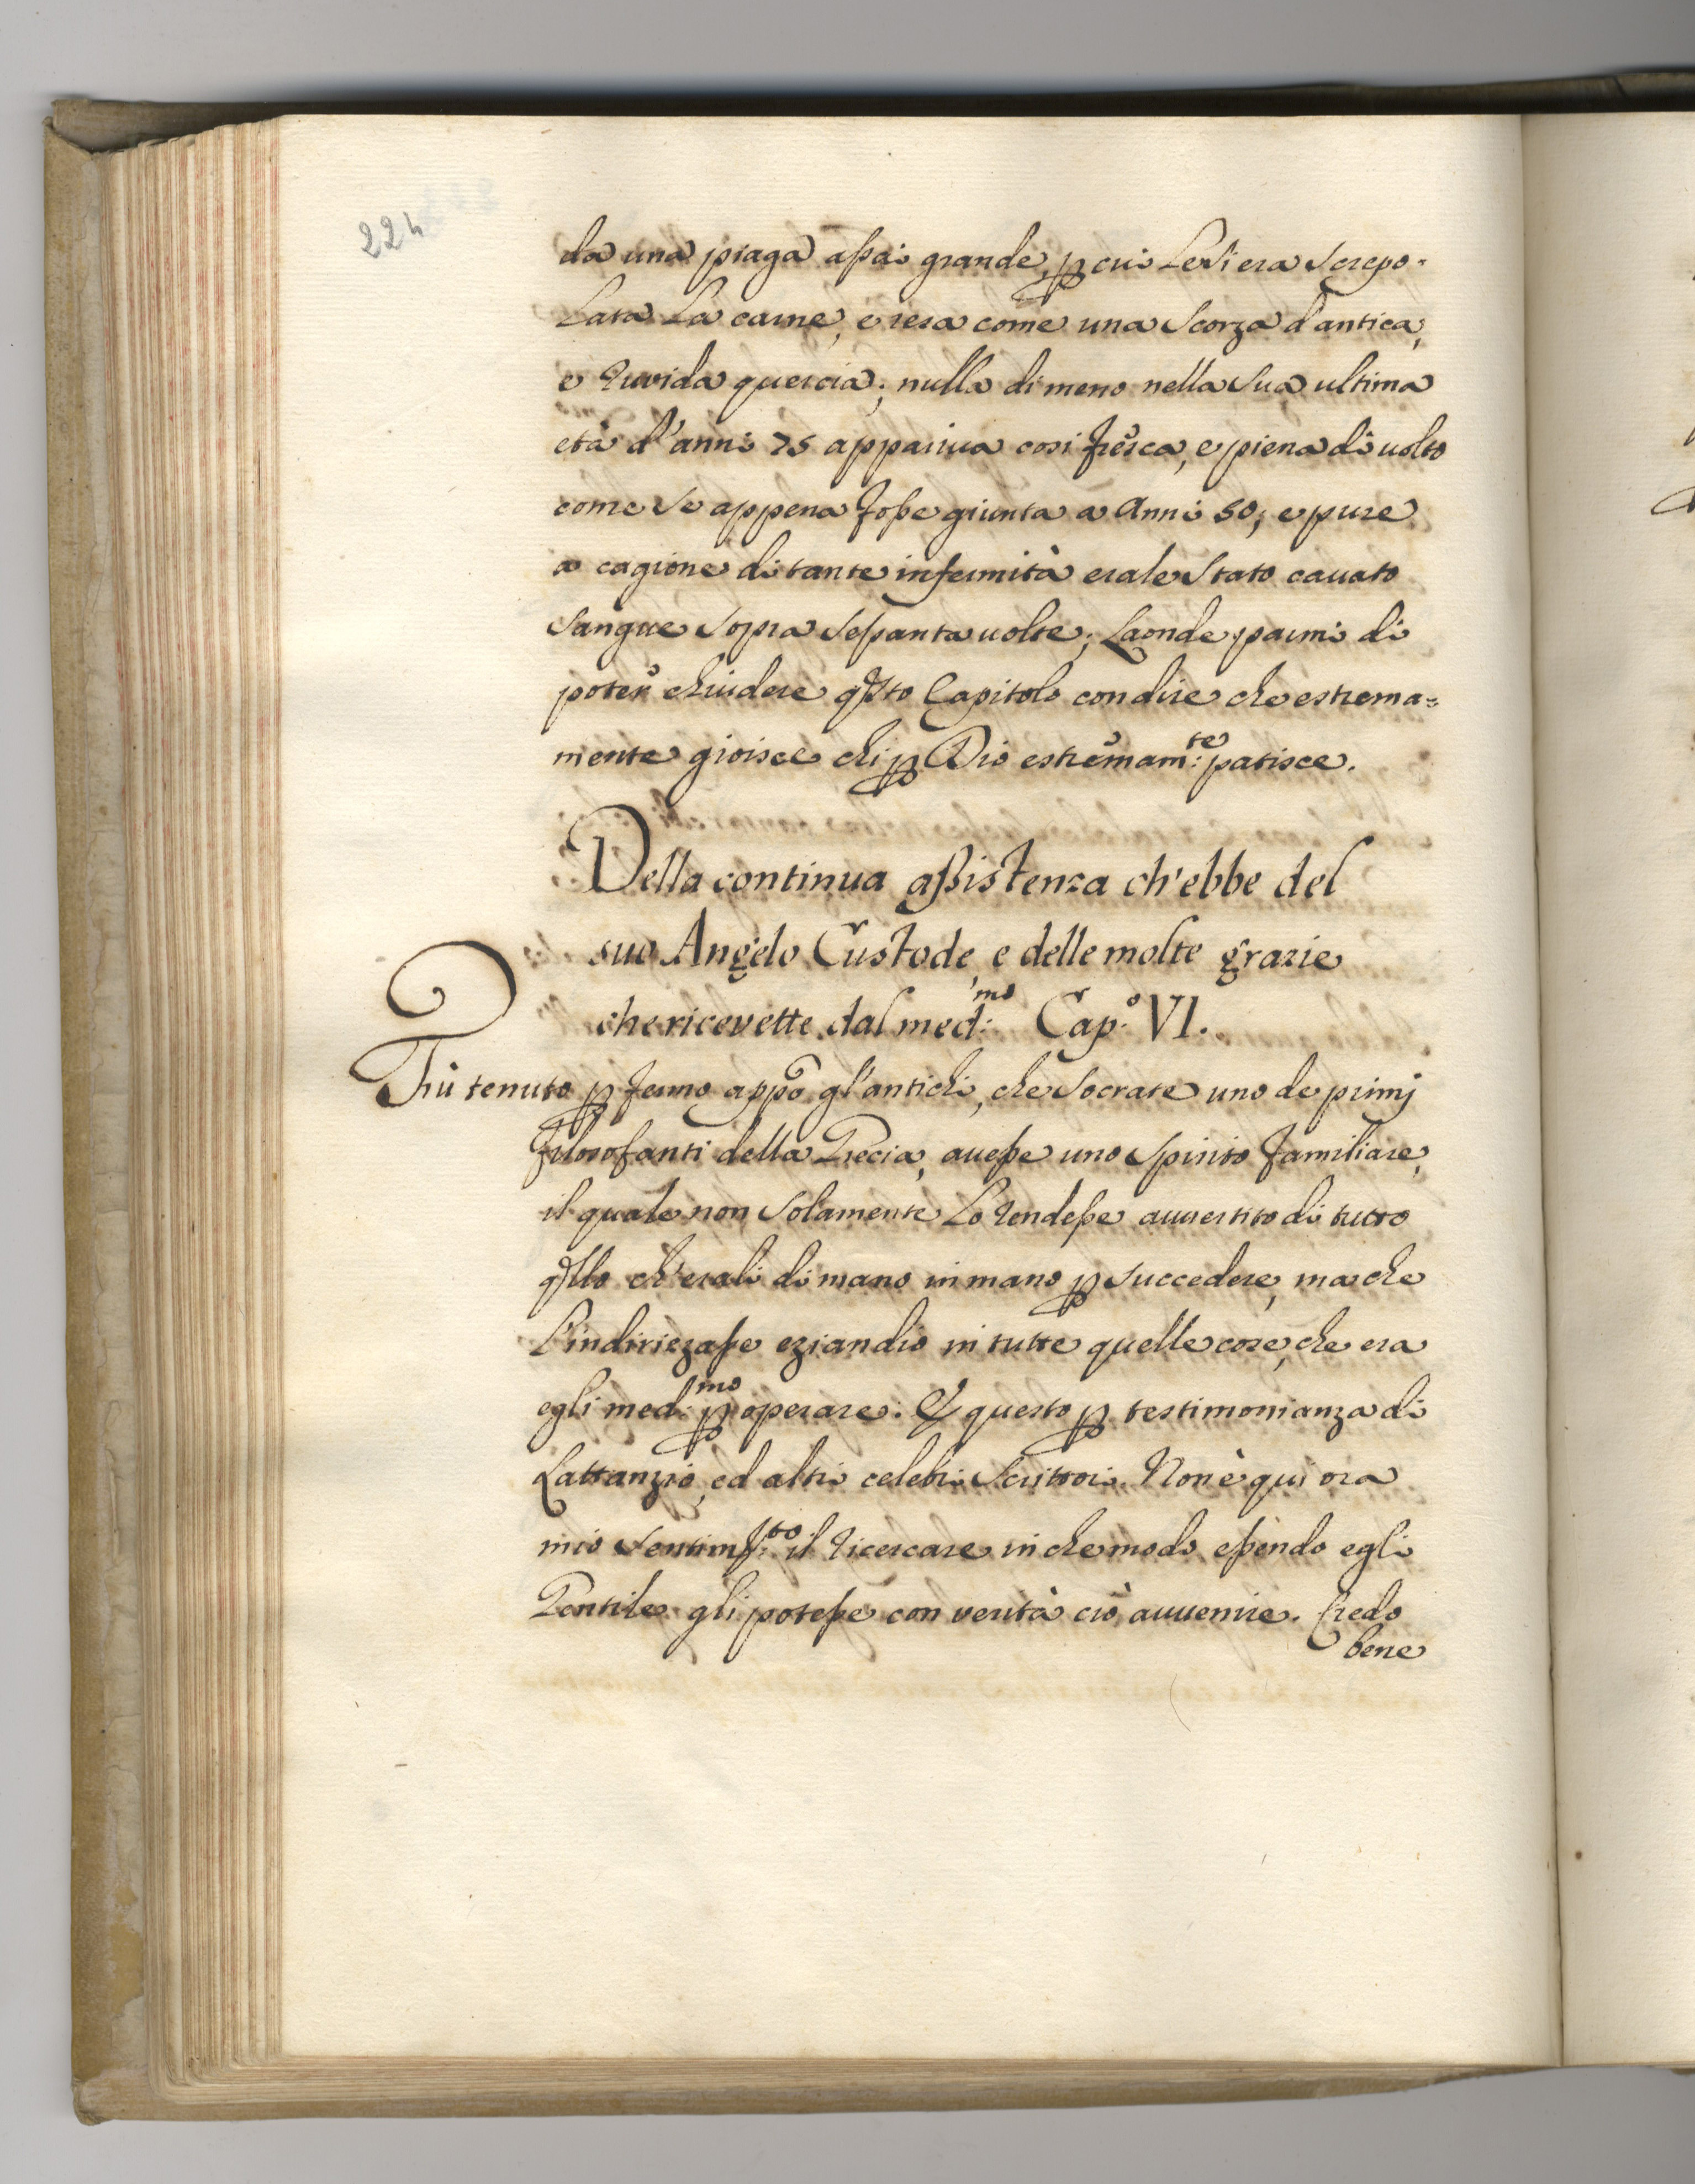 224
da una piaga assai grande, p cui le si era screpo-
lata la carne, e resa come una scorza d'antica,
e ruvida quercia; nulla di meno nella sua ultima
età d'anni 75 appariua cosi fresca, e piena di uolto
come se appena fosse giunta a Anni 50; e pure
a cagione di tante infermità erale stato cauato
sangue sopra sessanta uolte; Laonde parmi di
poter chiudere qsto Capitolo con dire che estrema=
mente gioisce chi p Dio estremam:te patisce.
Della continua assistenza ch'ebbe del
suo Angelo Custode, e delle molte grazie
che ricevette dal med:mo Cap:o VI.
Fù tenuto p fermo appo gl'antichi, che Socrate uno de primj
filosofanti della Grecia, auesse uno spirito familiare,
il quale non solamente lo rendesse auuertito di tutto
qllo ch'erali di mano in mano p succedere, ma che
l'indirizzasse eziandio in tutte quelle cose, che era
egli med:mo p operare: E questo p testimonianza di
Lattanzio, ed altri celebri Scrittori. Non è qui ora
mio sentim:to il ricercare in che modo essendo egli
Gentile gli potesse con verità ciò auuenire. Credo
bene